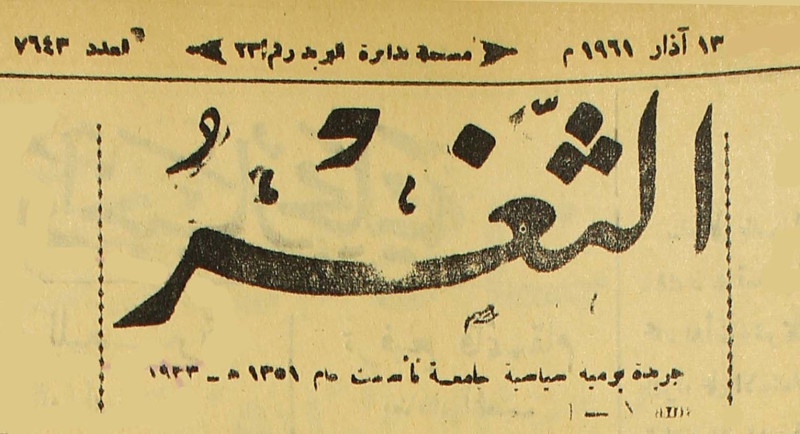 ١٣ آذار ١٩٦١ م مسجلة بدائرة البريد رقم ٢٣ العدد ٧٦٤٣
الثَّغْرُ
جريدة يومية سياسية جامعة تأسست عام ١٣٥١ هـ - ١٩٣٣